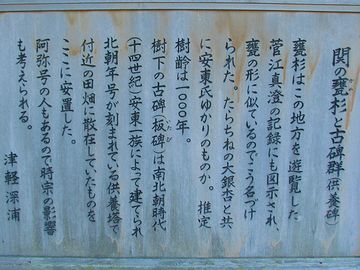 関の甕杉と古碑群(供養碑)
甕杉はこの地方を遊覧した
菅江真澄の記録にも図示され、
甕の形に似ているのでこう名づけ
られた。たらちねの大銀杏と共
に安東氏ゆかりのものか。推定
樹齢は一〇〇〇年。
樹下の古碑(板碑)は南北朝時代
(十四世紀)安東一族によって建てられ
北朝年号が刻まれている供養塔で
付近の田畑に散在していたものを
ここに安置した。
阿弥号の人もあるので時宗の影響
も考えられる。
津軽深浦